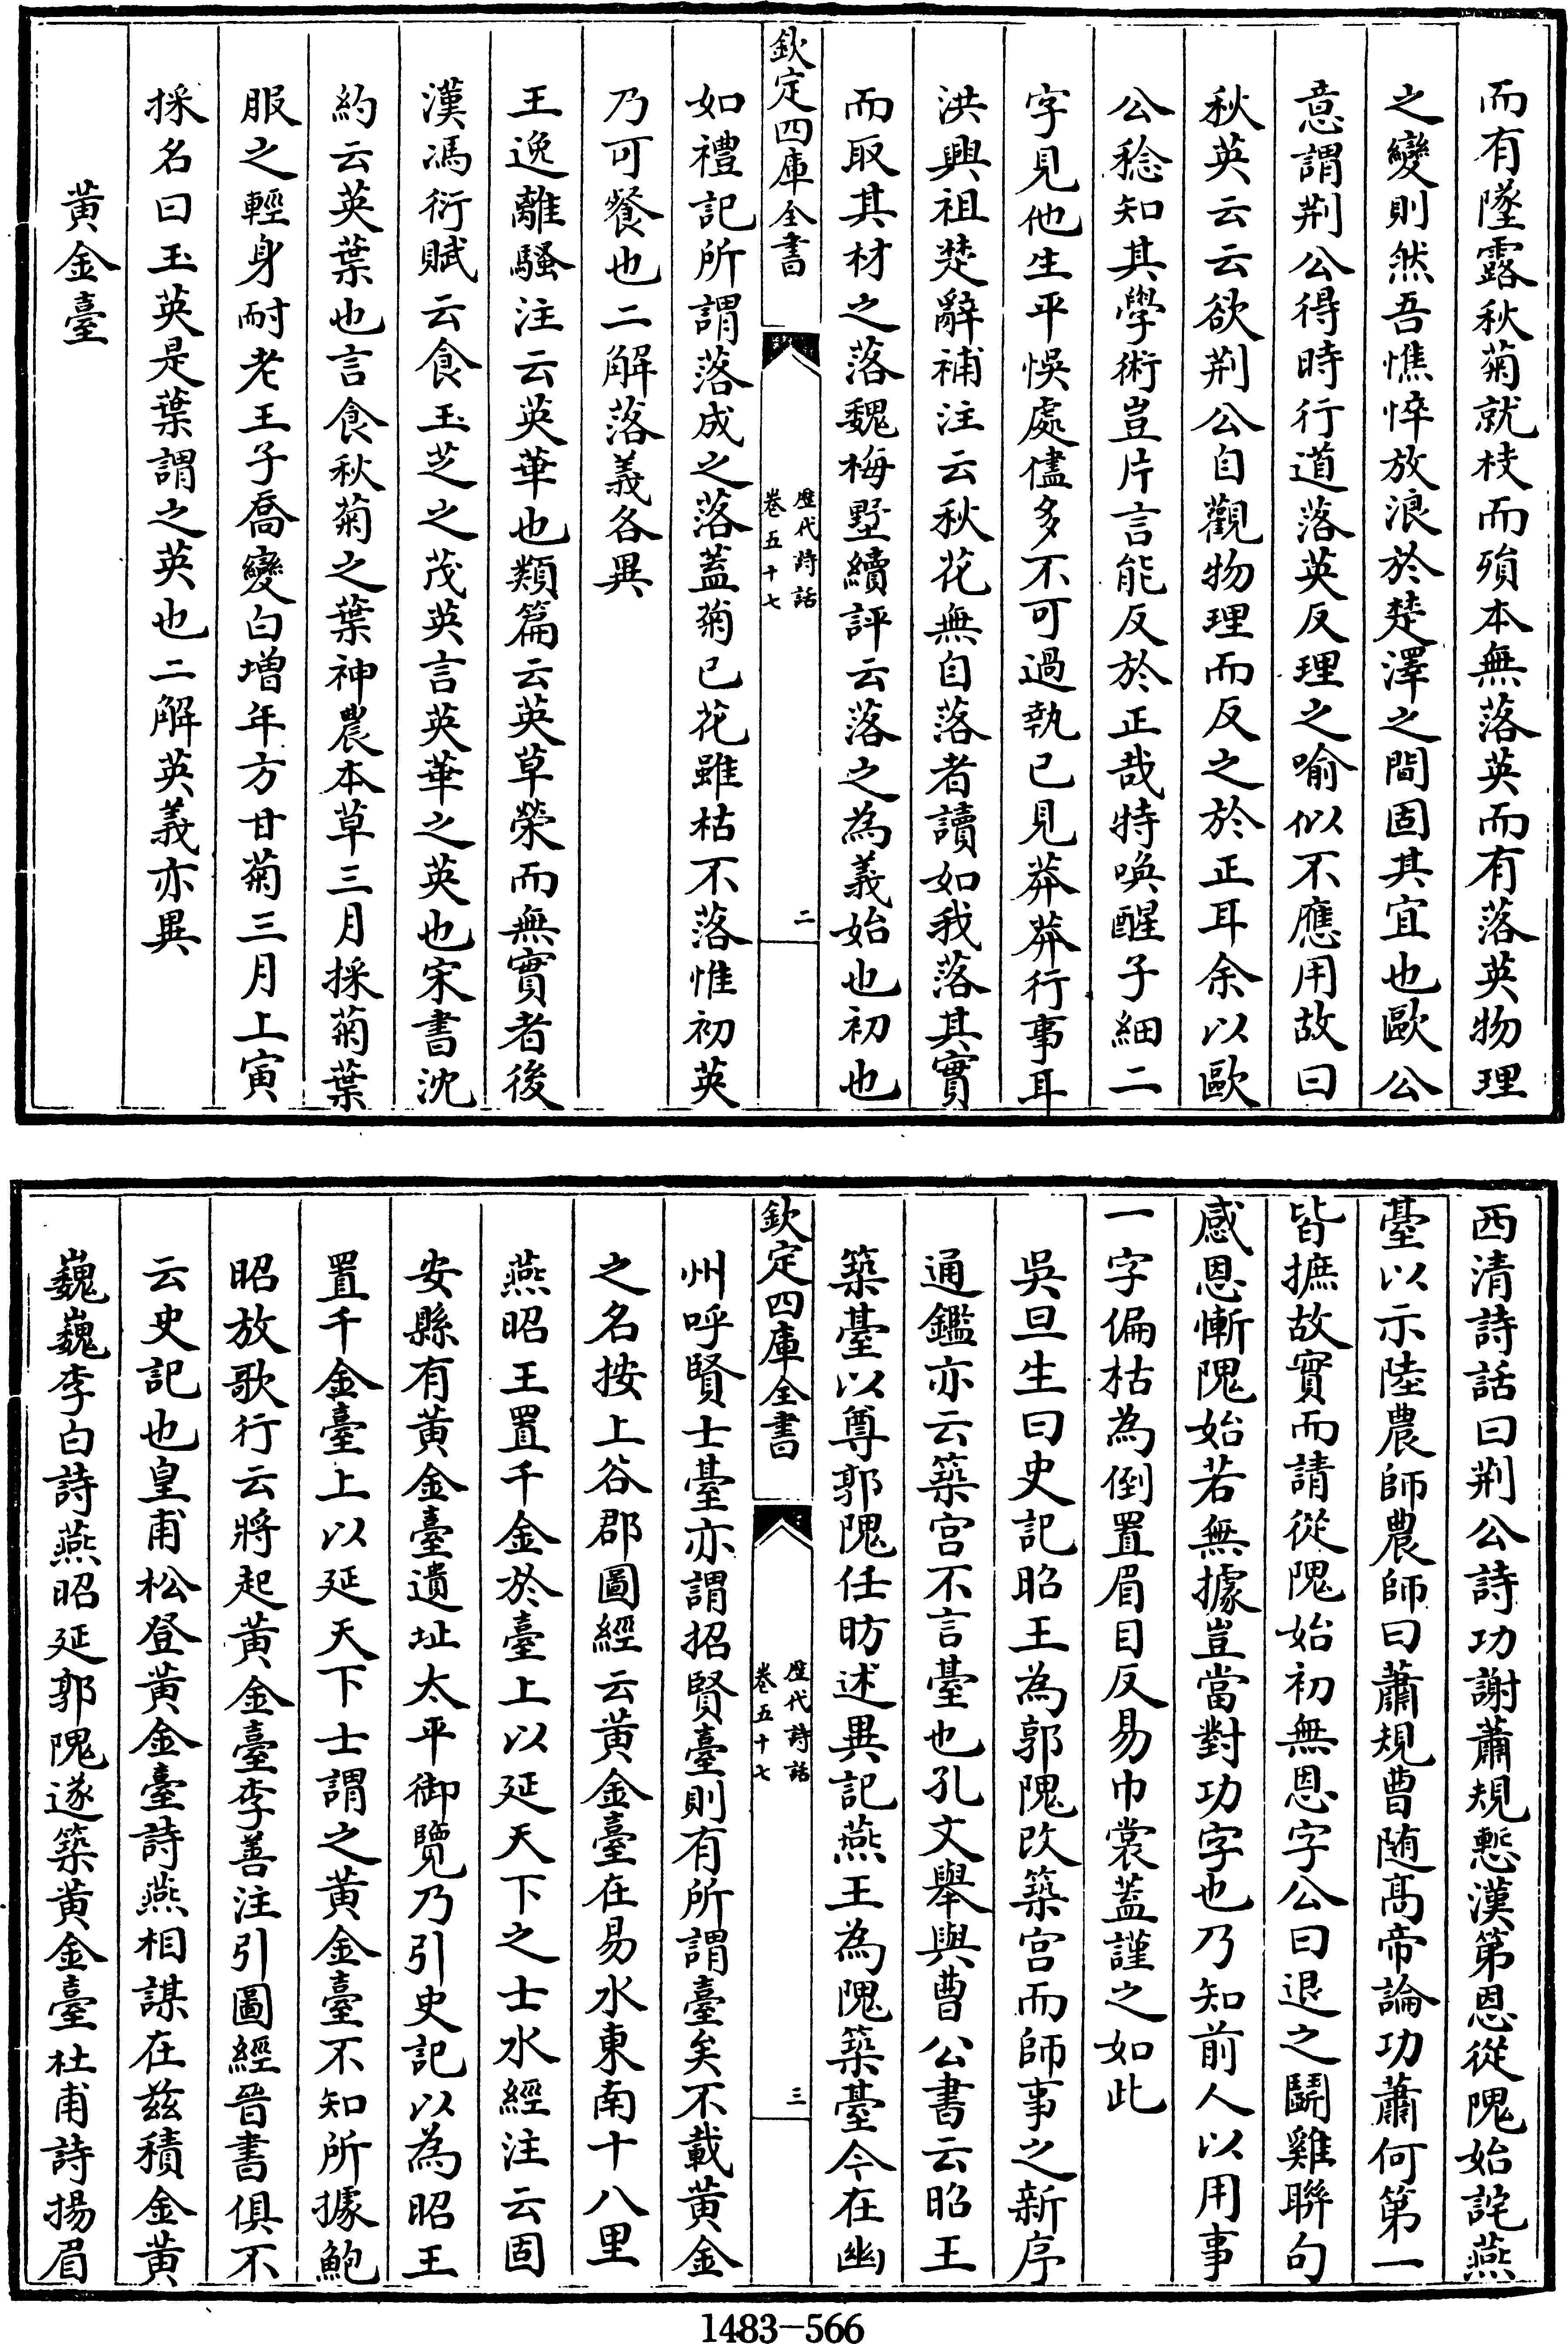 而有墜露秋菊就枝而殞本無落英而有落英物理
之變則然吾憔悴放浪於楚澤之間固其宜也歐公
意謂荆公得時行道落英反理之喻似不應用故曰
秋英云云欲荆公自觀物理而反之於正耳余以歐
公稔知其學術豈片言能反於正哉特喚醒子細二
字見他生平悞處儘多不可過執已見莽莽行事耳
洪興祖楚辭補注云秋花無自落者讀如我落其實
而取其材之落魏梅墅續評云落之為義始也初也
欽定四庫全書
歷代詩話
卷五十七
二
如禮記所謂落成之落蓋菊已花雖枯不落惟初英
乃可餐也二解落義各異
王逸離騷注云英華也類篇云英草榮而無實者後
漢馮衍賦云食玉芝之茂英言英華之英也宋書沈
約云英葉也言食秋菊之葉神農本草三月採菊葉
服之輕身耐老王子喬變白增年方甘菊三月上寅
採名曰玉英是葉謂之英也二解英義亦異
黃金臺
西清詩話曰荆公詩功謝蕭規慙漢第恩從隗始詫燕
臺以示陸農師農師曰蕭規曹随髙帝論功蕭何第一
皆摭故實而請從隗始初無恩字公曰退之鬭雞聯句
感恩慚隗始若無據豈當對功字也乃知前人以用事
一字偏枯為倒置眉目反易巾裳蓋謹之如此
吳旦生曰史記昭王為郭隗改築宫而師事之新序
通鑑亦云築宫不言臺也孔文舉與曹公書云昭王
築臺以尊郭隗任昉述異記燕王為隗築臺今在幽
欽定四庫全書
歷代詩話
卷五十七
三
州呼賢士臺亦謂招賢臺則有所謂臺矣不載黃金
之名按上谷郡圖經云黃金臺在易水東南十八里
燕昭王置千金於臺上以延天下之士水經注云固
安縣有黃金臺遺址太平御覽乃引史記以為昭王
置千金臺上以延天下士謂之黃金臺不知所據鮑
昭放歌行云將起黃金臺李善注引圖經晉書俱不
云史記也皇甫松登黃金臺詩燕相謀在兹積金黃
巍巍李白詩燕昭延郭隗遂築黃金臺杜甫詩揚眉
1483-566